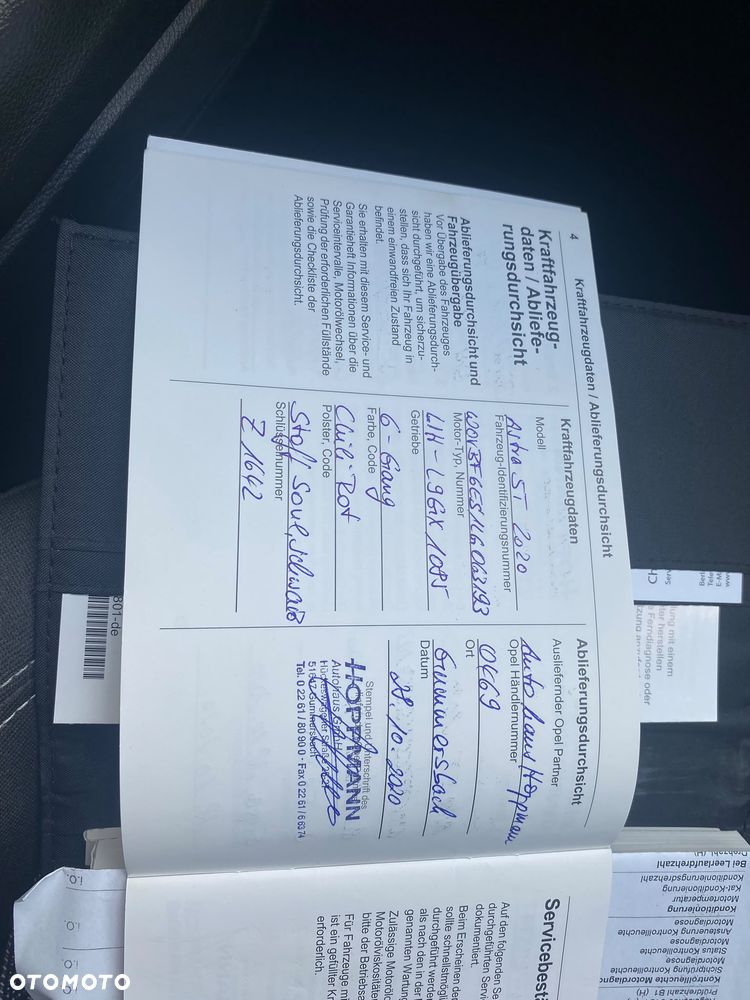 4 Kraftfahrzeugdaten / Ablieferungsdurchsicht
Kraftfahrzeug-
daten / Abliefe-
rungsdurchsicht
Ablieferungsdurchsicht und
Fahrzeugübergabe
Vor Übergabe des Fahrzeuges
haben wir eine Ablieferungsdurch-
sicht durchgeführt, um sicherzu-
stellen, dass sich Ihr Fahrzeug in
einem einwandfreien Zustand
befindet.
Sie erhalten mit diesem Service- und
Garantieheft Informationen über die
Serviceintervalle, Motorölwechsel,
Prüfung der erforderlichen Füllstände
sowie die Checkliste der
Ablieferungsdurchsicht.
Kraftfahrzeugdaten
Modell
Astra ST 2020
Fahrzeug-Identifizierungsnummer
Motor-Typ, Nummer
LIH-L9GIX1095
Getriebe
6-Gang
Farbe, Code
Chili-Rot
Polster, Code
Stoff Soul, schwarz
Schlüsselnummer
Z 1642
Ablieferungsdurchsicht
Ausliefernder Opel Partner
Autohaus Hoppmann
Opel Händlernummer
0469
Ort
Gummersbach
Datum
28.10.2020
Stempel und Unterschrift des
HOPPMANN
Autohaus
Tel. 0 22 61 / 80 90 0 - Fax 0 22 61 / 6 60 74
Servicebestä
Auf den folgenden Se
durchgeführten Servi
dokumentiert.
Beim Erscheinen der
sollte schnellstmöglic
durchgeführt werde
als nach den in der
genannten Wartun
Zulässige Motoröl
Motorölviskositäte
bitte der Betriebsa
Für Fahrzeuge mi
ist ein gefüllter Kr
erforderlich.
801-de
ung mit einem
ter herstellen
e Ferndiagnose oder
Bei Leerlaufdrehzahl
Konditionierungsdrehzahl
Kat-Konditionierung
Motortemperatur
Konditionierung
Motordiagnose
Ansteuerung Kontrollleuchte
Motordiagnose
Status Kontrollleuchte
Motordiagnose
Sichtprüfung Kontrollleuchte
i.O.
i.O.
OTOMOTO